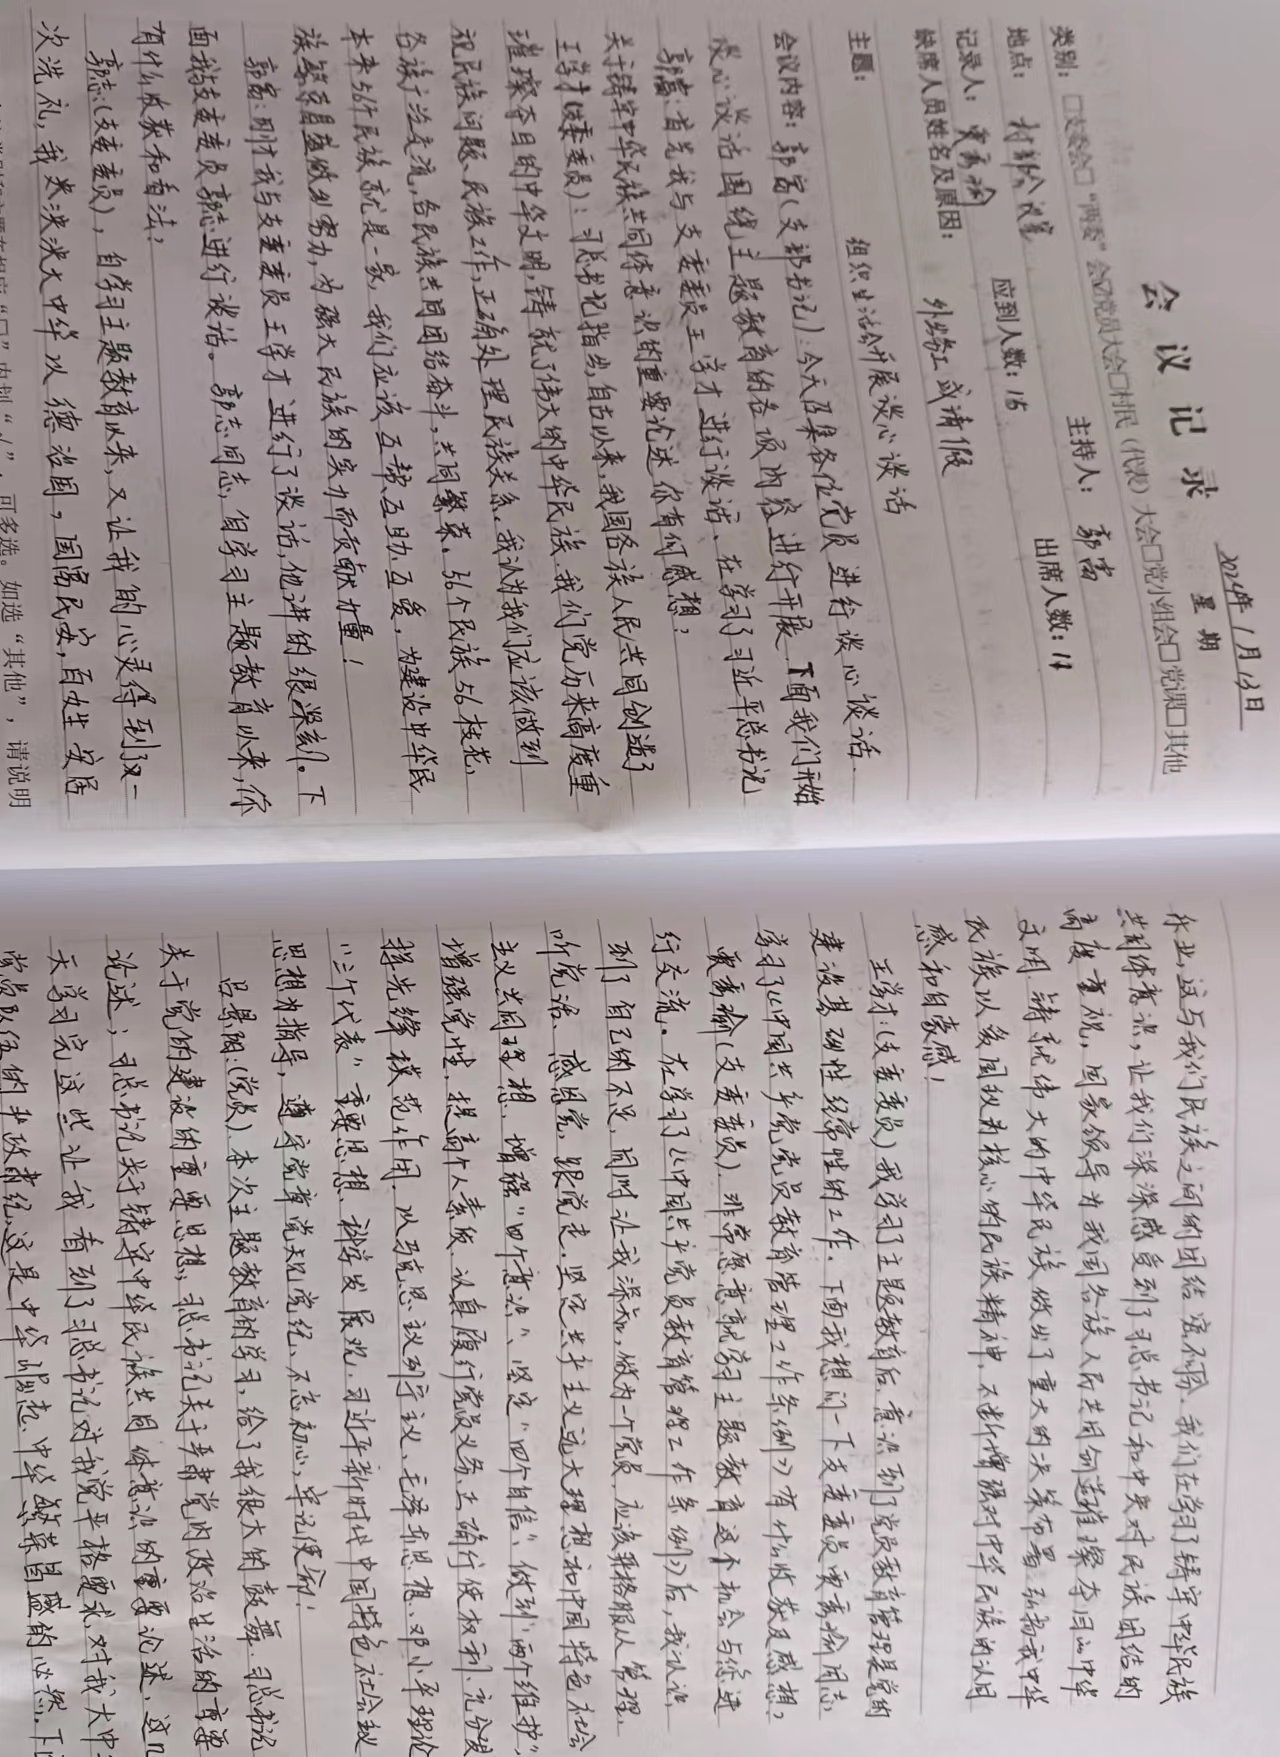 会议记录
2024年1月13日
星期
类别：□支委会□“两委”会☑党员大会□村民（代表）大会□党小组会□党课□其他
地点：村部会议室 主持人：郭富
记录人：贾秀瑜 应到人数：15 出席人数：11
缺席人员姓名及原因： 外出务工或请假
主题： 组织生活会开展谈心谈话
会议内容：郭富（支部书记）：今天召集各位党员进行谈心谈话、
谈心谈话围绕主题教育的各项内容进行开展、下面我们开始
郭富：首先我与支委委员王学才进行谈话、在学习了习近平总书记
关于铸牢中华民族共同体意识的重要论述你有何感想？
王学才（支委委员）：习总书记指出，自古以来，我国各族人民共同创造了
璀璨夺目的中华文明，铸就了伟大的中华民族、我们党历来高度重
视民族问题、民族工作，正确处理民族关系。我认为我们应该做到
各族交流，各民族共同团结奋斗，共同繁荣。56个民族56枝花，
本来56个民族就是一家，我们应该互帮、互助、互爱，为建设中华民
族繁荣昌盛做出努力，为强大民族的实力而贡献力量！
郭富：刚才我与支委委员王学才进行了谈话，他讲的很深刻。下
面我与支委委员郭志进行谈话。郭志同志，自学习主题教育以来，你
有什么收获和看法？
郭志（支委委员），自学习主题教育以来，又让我的心灵得到又一
次洗礼，我泱泱大中华以德治国，国富民安，百姓安居
可多选。如选“其他”，请说明
乐业，这与我们民族之间的团结密不可分。我们在学习了铸牢中华民族
共同体意识，让我们深深感受到了习总书记和中央对民族团结的
高度重视，国家领导为我国各族人民共同创造璀璨夺目的中华
文明、铸就伟大的中华民族做出了重大的决策布署、弘扬我中华
民族以爱国主义为核心的民族精神、不断增强对中华民族的认同
感和自豪感！
王学才：（支委委员）我学习了主题教育后，意识到了党员教育管理是党的
建设基础性经常性的工作。下面我想问一下支委委员贾秀瑜同志，
学习了《中国共产党党员教育管理工作条例》有什么收获及感想，
贾秀瑜（支委委员）、非常愿意就学习主题教育这个机会与您进
行交流。在学习了《中国共产党员教育管理工作条例》后，我认识
到了自己的不足，同时让我深知，做为一个党员，应该严格服从管理、
听党话、感恩党，跟党走，坚定共产主义远大理想和中国特色社会
主义共同理想、增强“四个意识”、坚定“四个自信”、做到“两个维护”，
增强党性，提高个人素质、认真履行党员义务正确行使权利、充分发
挥先锋模范作用、以马克思主义列宁主义、毛泽东思想、邓小平理论
“三个代表”重要思想、科学发展观、习近平新时代中国特色社会主义
思想为指导，遵守党章党规党纪、不忘初心，牢记使命！
吕景明：（党员）、本次主题教育的学习，给了我很大的鼓舞、习总书记
关于党的建设的重要思想，习总书记关于严肃党内政治生活的重要
论述；习总书记关于铸牢中华民族共同体意识的重要论述、这几
天学习完这些让我看到了习总书记对我党严格要求，对我大中
这是中华崛起、中华繁荣昌盛的必然、